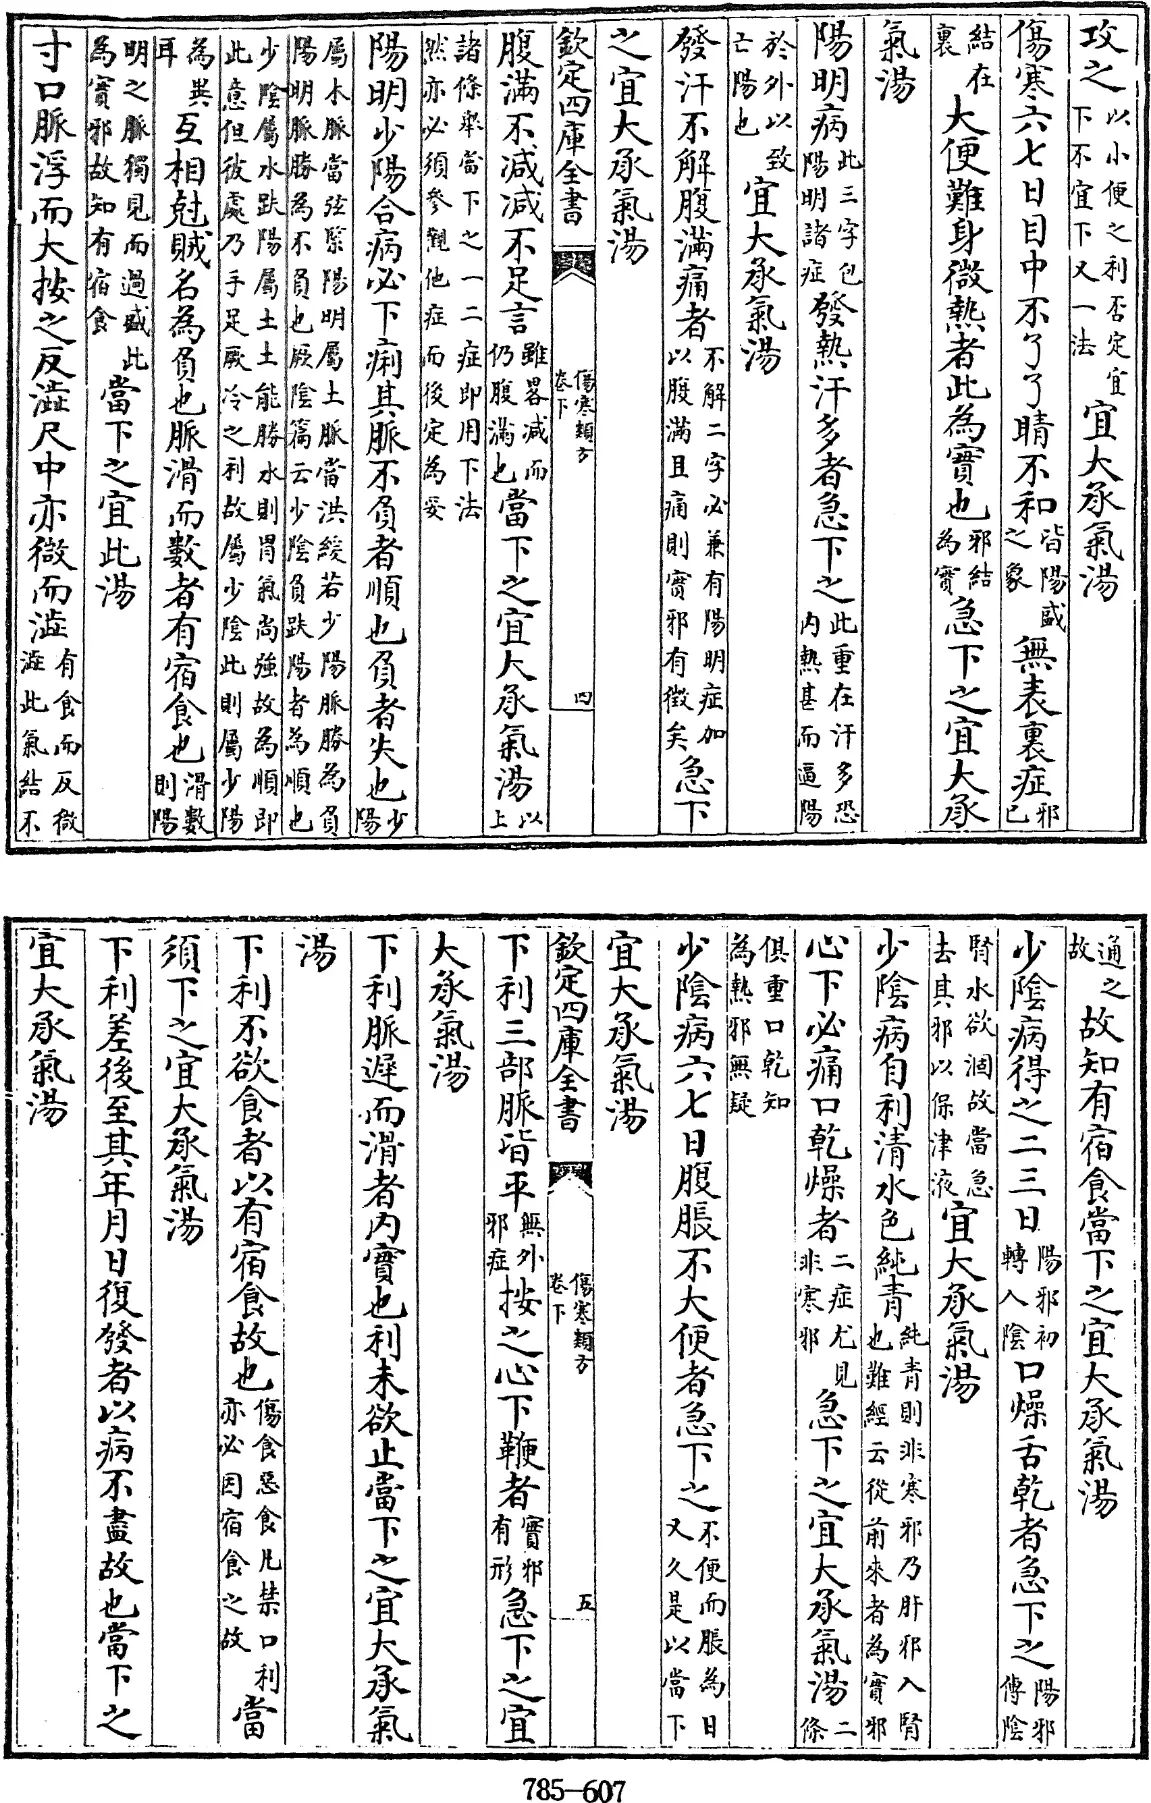 攻之以小便之利否定宜下不宜下又一法宜大承氣湯
傷寒六七日目中不了了睛不和皆陽盛之象無表裏症邪已
結在裏大便難身微熱者此為實也邪結為實急下之宜大承
氣湯
陽明病此三字包陽明諸症發熱汗多者急下之此重在汗多恐内熱甚而逼陽
於外以致亡陽也宜大承氣湯
發汗不解腹滿痛者不解二字必兼有陽明症加以腹滿且痛則實邪有徵矣急下
之宜大承氣湯
欽定四庫全書 傷寒類方卷下 四
腹滿不減減不足言雖畧減而仍腹滿也當下之宜大承氣湯以上
諸條舉當下之一二症即用下法然亦必須參觀他症而後定為妥
陽明少陽合病必下痢其脈不負者順也負者失也少陽
屬木脈當弦緊陽明屬土脈當洪緩若少陽脈勝為負陽明脈勝為不負也厥陰篇云少陰負趺陽者為順也
少陰屬水趺陽屬土土能勝水則胃氣尚強故為順即此意但彼處乃手足厥冷之利故屬少陰此則屬少陽
為異耳互相尅賊名為負也脈滑而數者有宿食也滑數則陽
明之脈獨見而過盛此為實邪故知有宿食當下之宜此湯
寸口脈浮而大按之反澁尺中亦微而澁有食而反微澁此氣結不
通之故故知有宿食當下之宜大承氣湯
少陰病得之二三日陽邪初轉入陰口燥舌乾者急下之陽邪傳陰
腎水欲涸故當急去其邪以保津液宜大承氣湯
少陰病自利清水色純青純青則非寒邪乃肝邪入腎也難經云從前來者為實邪
心下必痛口乾燥者二症尤見非寒邪急下之宜大承氣湯二條
俱重口乾知為熱邪無疑
少陰病六七日腹脹不大便者急下之不便而脹為日又久是以當下
宜大承氣湯
欽定四庫全書 傷寒類方卷下 五
下利三部脈皆平無外邪症按之心下鞕者實邪有形急下之宜
大承氣湯
下利脈遲而滑者内實也利未欲止當下之宜大承氣
湯
下利不欲食者以有宿食故也傷食惡食凡禁口利亦必因宿食之故當
須下之宜大承氣湯
下利差後至其年月日復發者以病不盡故也當下之
宜大承氣湯
785—607